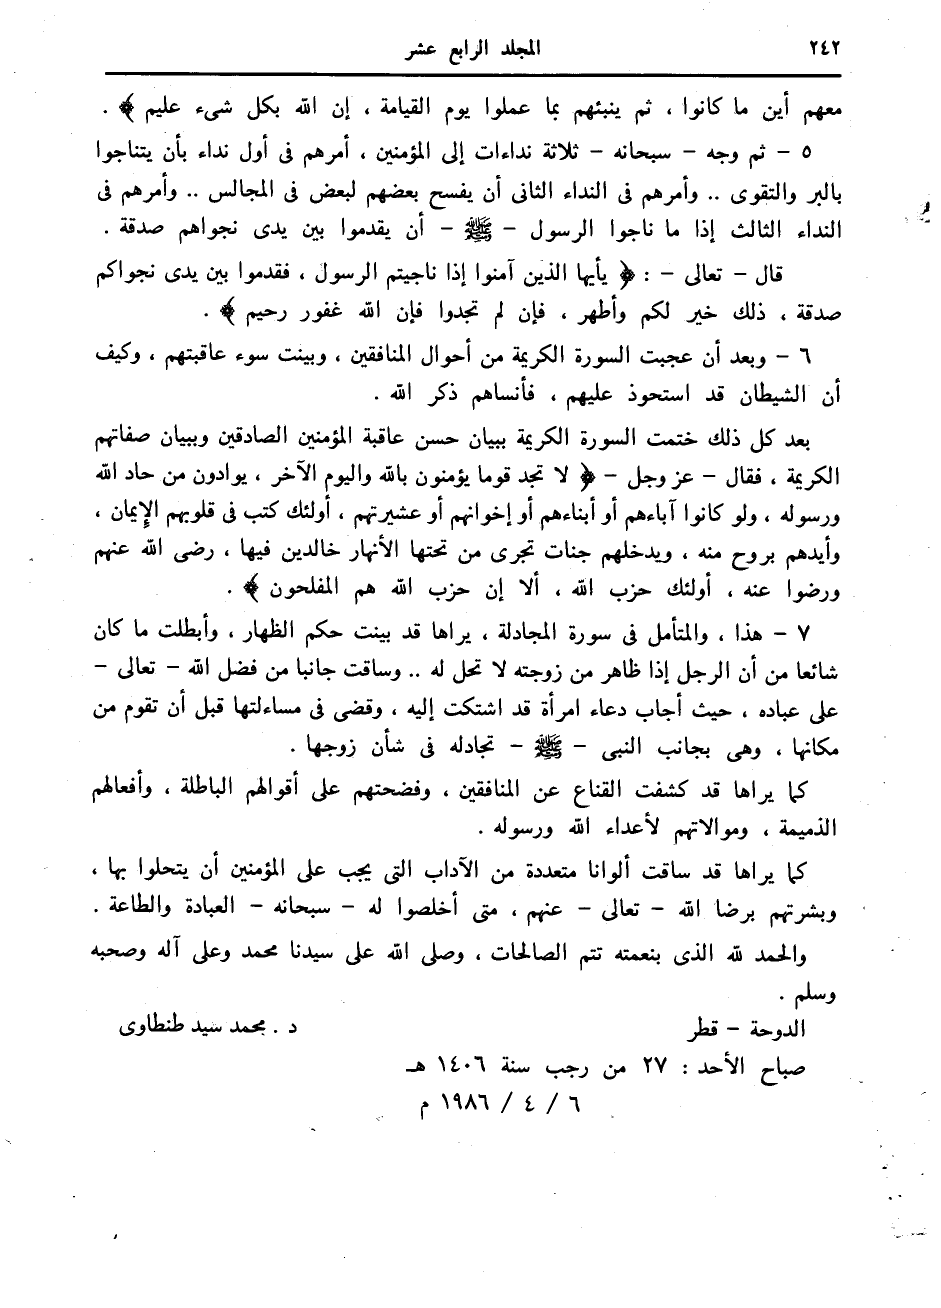 ٢٤٢ المجلد الرابع عشر
معهم أين ما كانوا ، ثم ينبئهم بما عملوا يوم القيامة ، إن الله بكل شىء عليم ﴾ .
٥ - ثم وجه - سبحانه - ثلاثة نداءات إلى المؤمنين ، أمرهم فى أول نداء بأن يتناجوا
بالبر والتقوى .. وأمرهم فى النداء الثانى أن يفسح بعضهم لبعض فى المجالس .. وأمرهم فى
النداء الثالث إذا ما ناجوا الرسول - ﷺ - أن يقدموا بين يدى نجواهم صدقة .
قال - تعالى - : ﴿ يأيها الذين آمنوا إذا ناجيتم الرسول ، فقدموا بين يدى نجواكم
صدقة ، ذلك خير لكم وأطهر ، فإن لم تجدوا فإن الله غفور رحيم ﴾ .
٦ - وبعد أن عجبت السورة الكريمة من أحوال المنافقين ، وبينت سوء عاقبتهم ، وكيف
أن الشيطان قد استحوذ عليهم ، فأنساهم ذكر الله .
بعد كل ذلك ختمت السورة الكريمة ببيان حسن عاقبة المؤمنين الصادقين وببيان صفاتهم
الكريمة ، فقال - عز وجل - ﴿ لا تجد قوما يؤمنون بالله واليوم الآخر ، يوادون من حاد الله
ورسوله ، ولو كانوا آباءهم أو أبناءهم أو إخوانهم أو عشيرتهم ، أولئك كتب فى قلوبهم الإيمان ،
وأيدهم بروح منه ، ويدخلهم جنات تجرى من تحتها الأنهار خالدين فيها ، رضى الله عنهم
ورضوا عنه ، أولئك حزب الله ، ألا إن حزب الله هم المفلحون ﴾ .
٧ - هذا ، والمتأمل فى سورة المجادلة ، يراها قد بينت حكم الظهار ، وأبطلت ما كان
شائعا من أن الرجل إذا ظاهر من زوجته لا تحل له .. وساقت جانبا من فضل الله - تعالى -
على عباده ، حيث أجاب دعاء امرأة قد اشتكت إليه ، وقضى فى مساءلتها قبل أن تقوم من
مكانها ، وهى بجانب النبى - ﷺ - تجادله فى شأن زوجها .
كما يراها قد كشفت القناع عن المنافقين ، وفضحتهم على أقوالهم الباطلة ، وأفعالهم
الذميمة ، وموالاتهم لأعداء الله ورسوله .
كما يراها قد ساقت ألوانا متعددة من الآداب التى يجب على المؤمنين أن يتحلوا بها ،
وبشرتهم برضا الله - تعالى - عنهم ، متى أخلصوا له - سبحانه - العبادة والطاعة .
والحمد لله الذى بنعمته تتم الصالحات ، وصلى الله على سيدنا محمد وعلى آله وصحبه
وسلم .
الدوحة - قطر د . محمد سيد طنطاوى
صباح الأحد : ٢٧ من رجب سنة ١٤٠٦ هـ
٦ / ٤ / ١٩٨٦ م